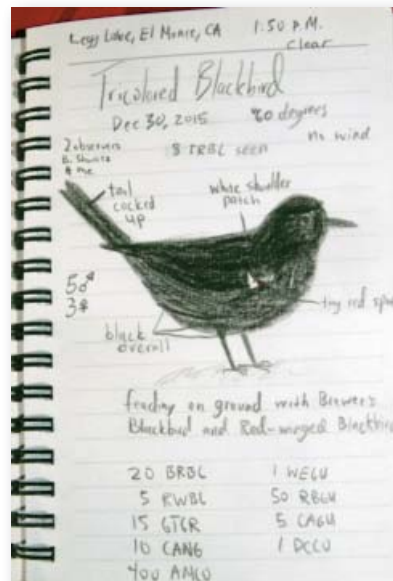 Legg Lake, El Monte, CA 1:50 P.M.
clear
Tricolored Blackbird
Dec 30, 2015 70 degrees
no wind
2 observers
& me
8 TRBL seen
tail
cocked
up
white shoulder
patch
5♂
3♀
tiny red
black
overall
feeding on ground with Brewer's
Blackbird and Red-winged Blackbird
20 BRBL 1 WEGU
5 RWBL 50 RBGU
15 GTGR 5 CAGU
10 CANG 1 DCCO
400 AMCO